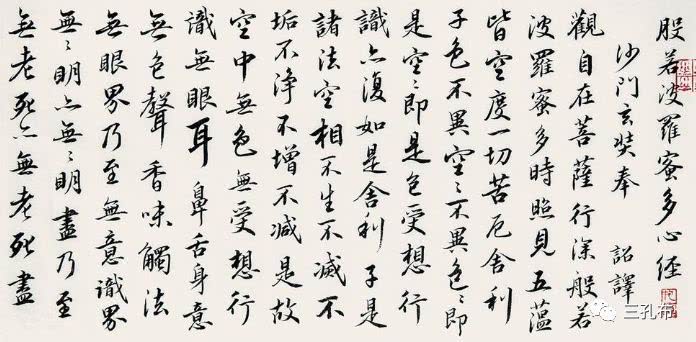 般若波羅蜜多心經
沙門玄奘奉 詔譯
觀自在菩薩行深般若
波羅蜜多時照見五蘊
皆空度一切苦厄舍利
子色不異空〻不異色〻即
是空〻即是色受想行
識亦復如是舍利子是
諸法空相不生不滅不
垢不淨不增不減是故
空中無色無受想行
識無眼耳鼻舌身意
無色聲香味觸法
無眼界乃至無意識界
無〻明亦無〻明盡乃至
無老死亦無老死盡
三孔布